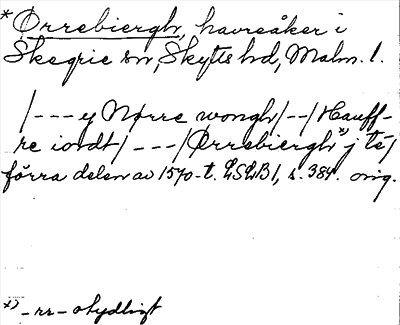 * Ørrebierghr, havreåker i
Skegrie sn, Skytts hd, Malm. l.
/---ej Nørre wongh/--/Hauff-
re iordt/---/Ørrebierghr x) j té/
förra delen av 1570-t. LSLB 1, s. 384. orig.
x) -rr- otydligt